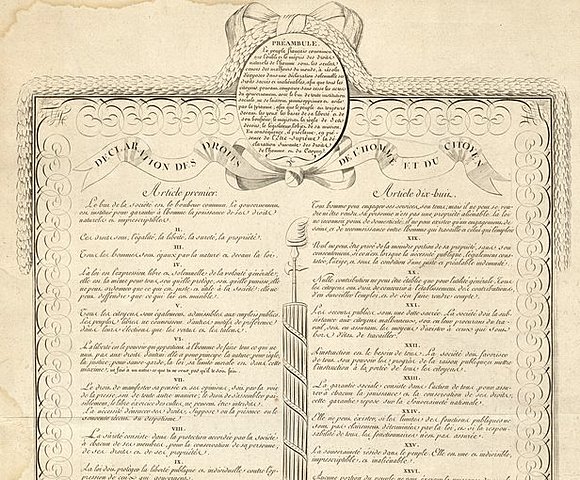 PRÉAMBULE.
Le peuple français convaincu
que l'oubli et le mépris des droits
naturels de l'homme sont les seules
causes des malheurs du monde, a résolu
d'exposer dans une déclaration solennelle ces
droits sacrés et inaliénables, afin que tous les
citoyens pouvant comparer sans cesse les actes
du gouvernement avec le but de toute institution
sociale ne se laissent jamais opprimer et avilir
par la tyrannie; afin que le peuple ait toujours
devant les yeux les bases de sa liberté et de
son bonheur, le magistrat la règle de ses
devoirs, le législateur l'objet de sa mission.
En conséquence, il proclame en pré-
sence de l'Être Suprême la dé-
claration suivante des droits
de l'homme et du Citoyen
DECLARATION DES DROITS DE L'HOMME ET DU CITOYEN
Article premier.
Le but de la société est le bonheur commun. Le gouvernement
est institué pour garantir à l'homme la jouissance de ses droits
naturels et imprescriptibles.
II.
Ces droits sont, l'égalité, la liberté, la sûreté, la propriété.
III.
Tous les hommes sont égaux par la nature et devant la loi.
IV.
La loi est l'expression libre et solennelle de la volonté générale;
elle est la même pour tous, soit qu'elle protège, soit qu'elle punisse; elle
ne peut ordonner que ce qui est juste et utile à la société; elle ne
peut défendre que ce qui lui est nuisible.
V.
Tous les citoyens sont également admissibles aux emplois publics.
Les peuples libres ne connoissent d'autres motifs de préférence
dans leurs élections que les vertus et les talens.
VI.
La liberté est le pouvoir qui appartient à l'homme de faire tout ce qui ne
nuit pas aux droits d'autrui: elle a pour principe la nature; pour règle,
la justice; pour sauve-garde, la loi: sa limite morale est dans cette
maxime, ne fais pas à un autre ce que tu ne veux pas qu'il te soit fait.
VII.
Le droit de manifester sa pensée et ses opinions, soit par la voie
de la presse, soit de toute autre manière, le droit de s'assembler pai-
siblement, le libre exercice des cultes, ne peuvent être interdits.
La nécessité d'énoncer ces droits suppose ou la présence ou le
souvenir récent du despotisme.
VIII.
La sûreté consiste dans la protection accordée par la Société
à chacun de ses membres, pour la conservation de sa personne,
de ses droits et de ses propriétés.
IX.
La loi doit protéger la liberté publique et individuelle contre l'op-
pression de ceux qui gouvernent.
Article dix-huit.
Tout homme peut engager ses services, son tems; mais il ne peut se ven-
dre ni être vendu. Sa personne n'est pas une propriété aliénable. La loi
ne reconnoit point de domesticité; il ne peut exister qu'un engagement de
soins et de reconnoissance entre l'homme qui travaille et celui qui l'emploie
XIX.
Nul ne peut être privé de la moindre portion de sa propriété, sans son
consentement, si ce n'est lorsque la nécessité publique, légalement cons-
tatée, l'exige, et sous la condition d'une juste et préalable indemnité.
XX.
Nulle contribution ne peut être établie que pour l'utilité générale. Tous
les citoyens ont droit de concourir à l'établissement des contributions,
d'en surveiller l'emploi, et de s'en faire rendre compte.
XXI.
Les secours publics sont une dette sacrée. La société doit la sub-
sistance aux citoyens malheureux, soit en leur procurant du tra-
vail, soit en assurant les moyens d'exister à ceux qui sont
hors d'état de travailler.
XXII.
L'instruction est le besoin de tous. La société doit favoriser
de tout son pouvoir les progrès de la raison publique et mettre
l'instruction à la portée de tous les citoyens.
XXIII.
La garantie sociale consiste dans l'action de tous pour assu-
rer à chacun la jouissance et la conservation de ses droits;
cette garantie repose sur la Souveraineté nationale.
XXIV.
Elle ne peut exister, si les limites des fonctions publiques ne
sont pas clairement déterminées par la loi, et si la respon-
sabilité de tous les fonctionnaires n'est pas assurée.
XXV.
La souveraineté réside dans le peuple. Elle est une et indivisible,
imprescriptible et inaliénable.
XXVI.
Aucune portion du peuple ne peut exercer la puissance du